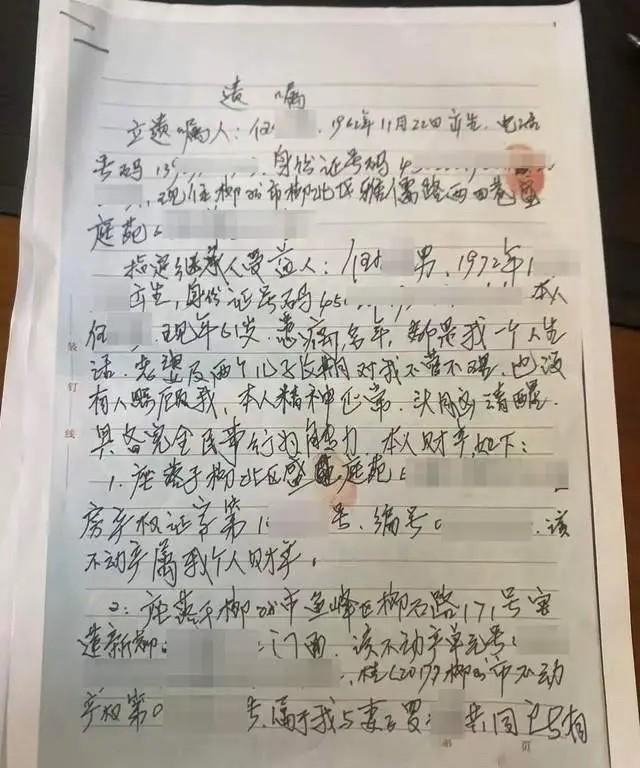 遗嘱
立遗嘱人：任 ，1962年11月22日产生，电话
号码139 ，身份证号码4
，现住柳州市柳北区雅儒路西四巷盛
庭苑
指定继承人受益人： 男，1972年1
产生，身份证号码45 本人
任 ，现年61岁，患病多年，都是我一个人生
活，先妻及两个儿子长期对我不管不理，也没
有人照顾我，本人精神正常，头脑清醒，
具备完全民事行为能力，本人财产如下：
1、座落于柳北区盛 庭苑
房产权证字第1 号，编号 ，该
不动产属我个人财产。
2、座落于柳州市鱼峰区柳石路171号
造新柳 门面，该不动产单元号
，桂（2017）柳州市不动
产权第0 号，属于我与妻子罗 共同
装
钉
线
第 页